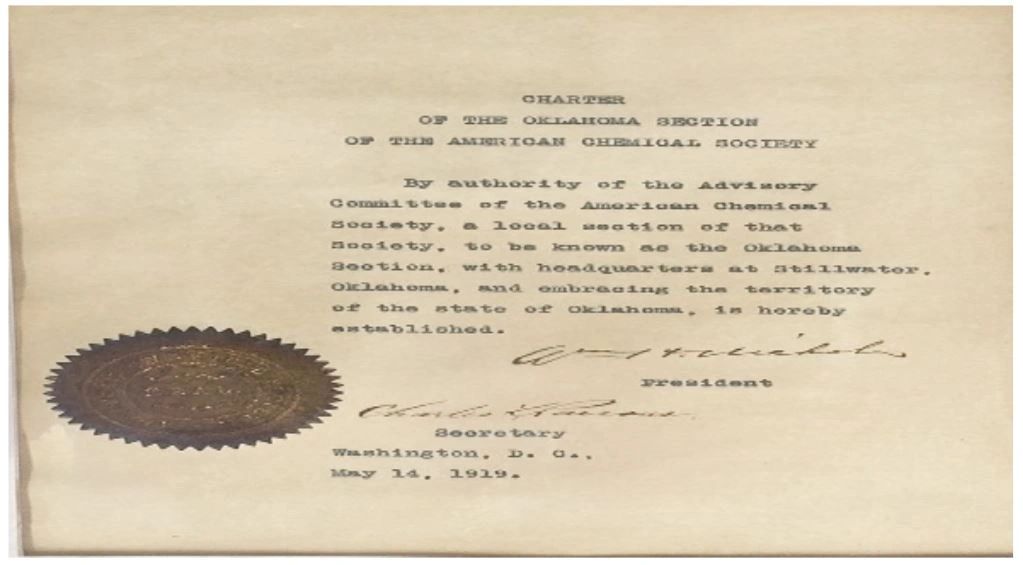 CHARTER
OF THE OKLAHOMA SECTION
OF THE AMERICAN CHEMICAL SOCIETY
By authority of the Advisory
Committee of the American Chemical
Society, a local section of that
Society, to be known as the Oklahoma
Section, with headquarters at Stillwater,
Oklahoma, and embracing the territory
of the state of Oklahoma, is hereby
established.
Wm H. Nichols
President
Charles L. Parsons
Secretary
Washington, D. C.,
May 14, 1919.